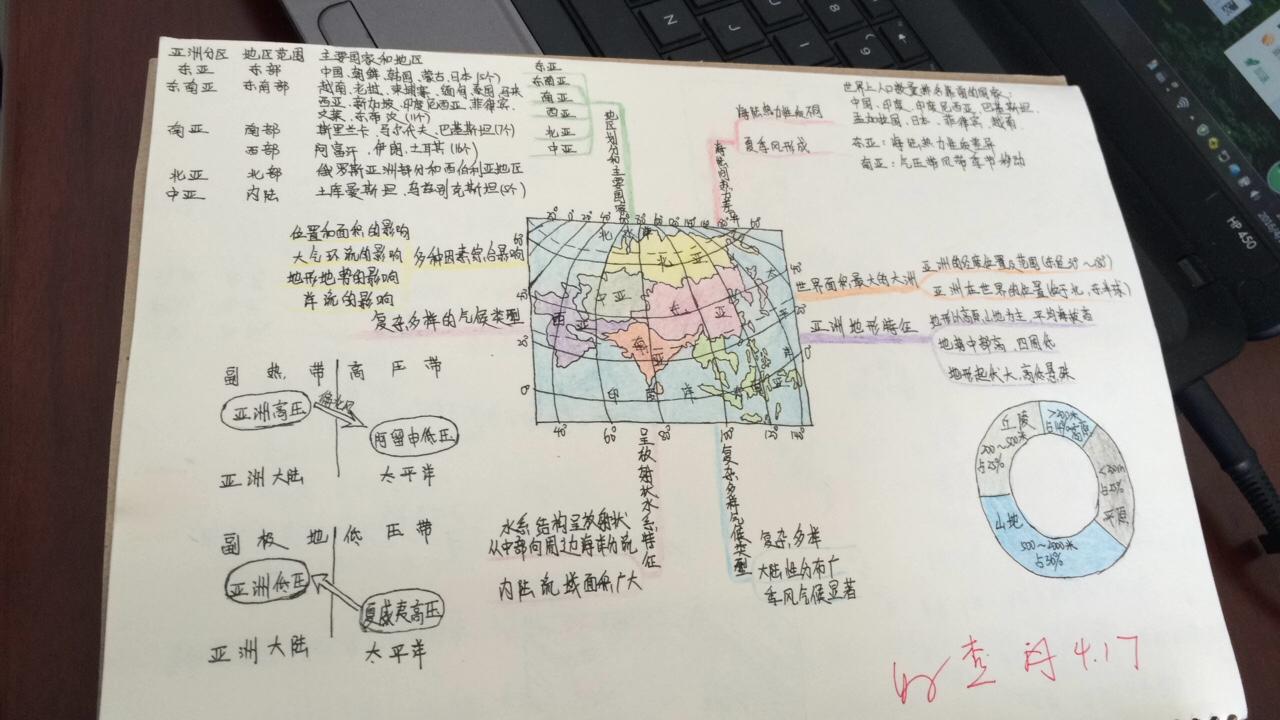 亚洲分区 地区范围 主要国家和地区
东亚 东部 中国、朝鲜、韩国、蒙古、日本(5个)
东南亚 东南部 越南、老挝、柬埔寨、缅甸、泰国、马来
西亚、新加坡、印度尼西亚、菲律宾、
文莱、东帝汶(11个)
南亚 南部 斯里兰卡、马尔代夫、巴基斯坦(7个)
西部 阿富汗、伊朗、土耳其
北亚 北部 俄罗斯亚洲部分和西伯利亚地区
中亚 内陆 土库曼斯坦、乌兹别克斯坦(5个)
东亚
东南亚
南亚
西亚
北亚
中亚
地区划分的主要国家
海陆热力性质不同
夏季风形成
世界上人口数量排名靠前的国家:
中国、印度、印度尼西亚、巴基斯坦、
孟加拉国、日本、菲律宾、越南
东亚:海陆热力性质差异
南亚:气压带风带季节移动
位置和面积的影响
大气环流的影响
地形地势的影响
洋流的影响
多种因素综合影响
复杂多样的气候类型
北亚
中亚
东亚
西亚
南亚
印度洋
世界面积最大的大洲
亚洲在世界的位置
亚洲地形特征
地形以高原山地为主,平均海拔高
地势中部高,四周低
地形起伏大,高低悬殊
副热带高压带
亚洲高压
阿留申低压
亚洲大陆 太平洋
副极地低压带
亚洲低压
夏威夷高压
亚洲大陆 太平洋
呈放射状水系特征
水系结构呈放射状
从中部向周边海洋分流
内陆流域面积广大
复杂多样气候类型
复杂,多样
大陆性分布广
季风气候显著
丘陵
200~500米
占25%
高原
<200m
占25%
平原
山地
占30%
查 阅 4.17
HP 450
Z
X
C
V
B
N
M